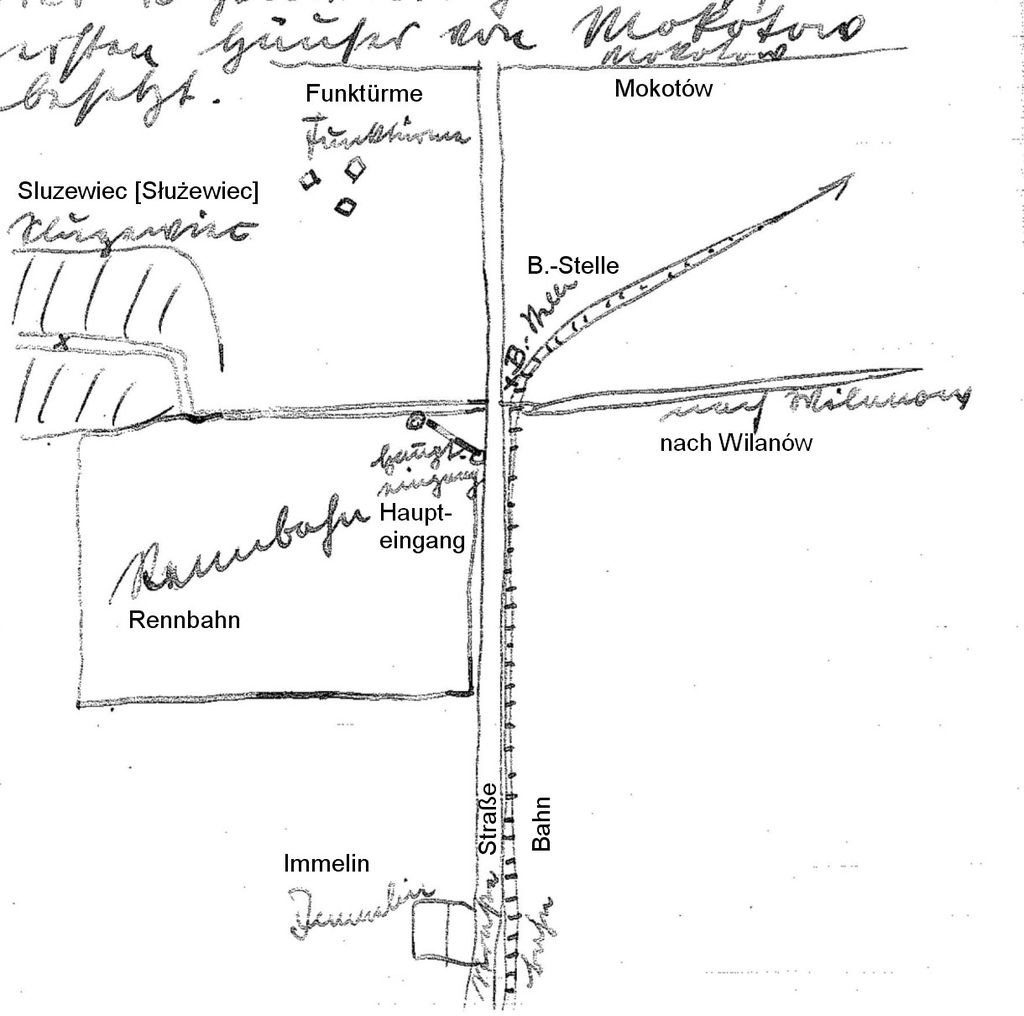 ersten Häuser von Mokotow
Mokotow
besetzt.
Funktürme
Mokotów
Funktürme
Sluzewiec [Służewiec]
Sluzewiec
B.-Stelle
B.-Stelle
nach Wilanow
nach Wilanów
Haupt-
eingang
Haupt-
eingang
Rennbahn
Rennbahn
Straße
Bahn
Immelin
Immelin
Straße
Bahn